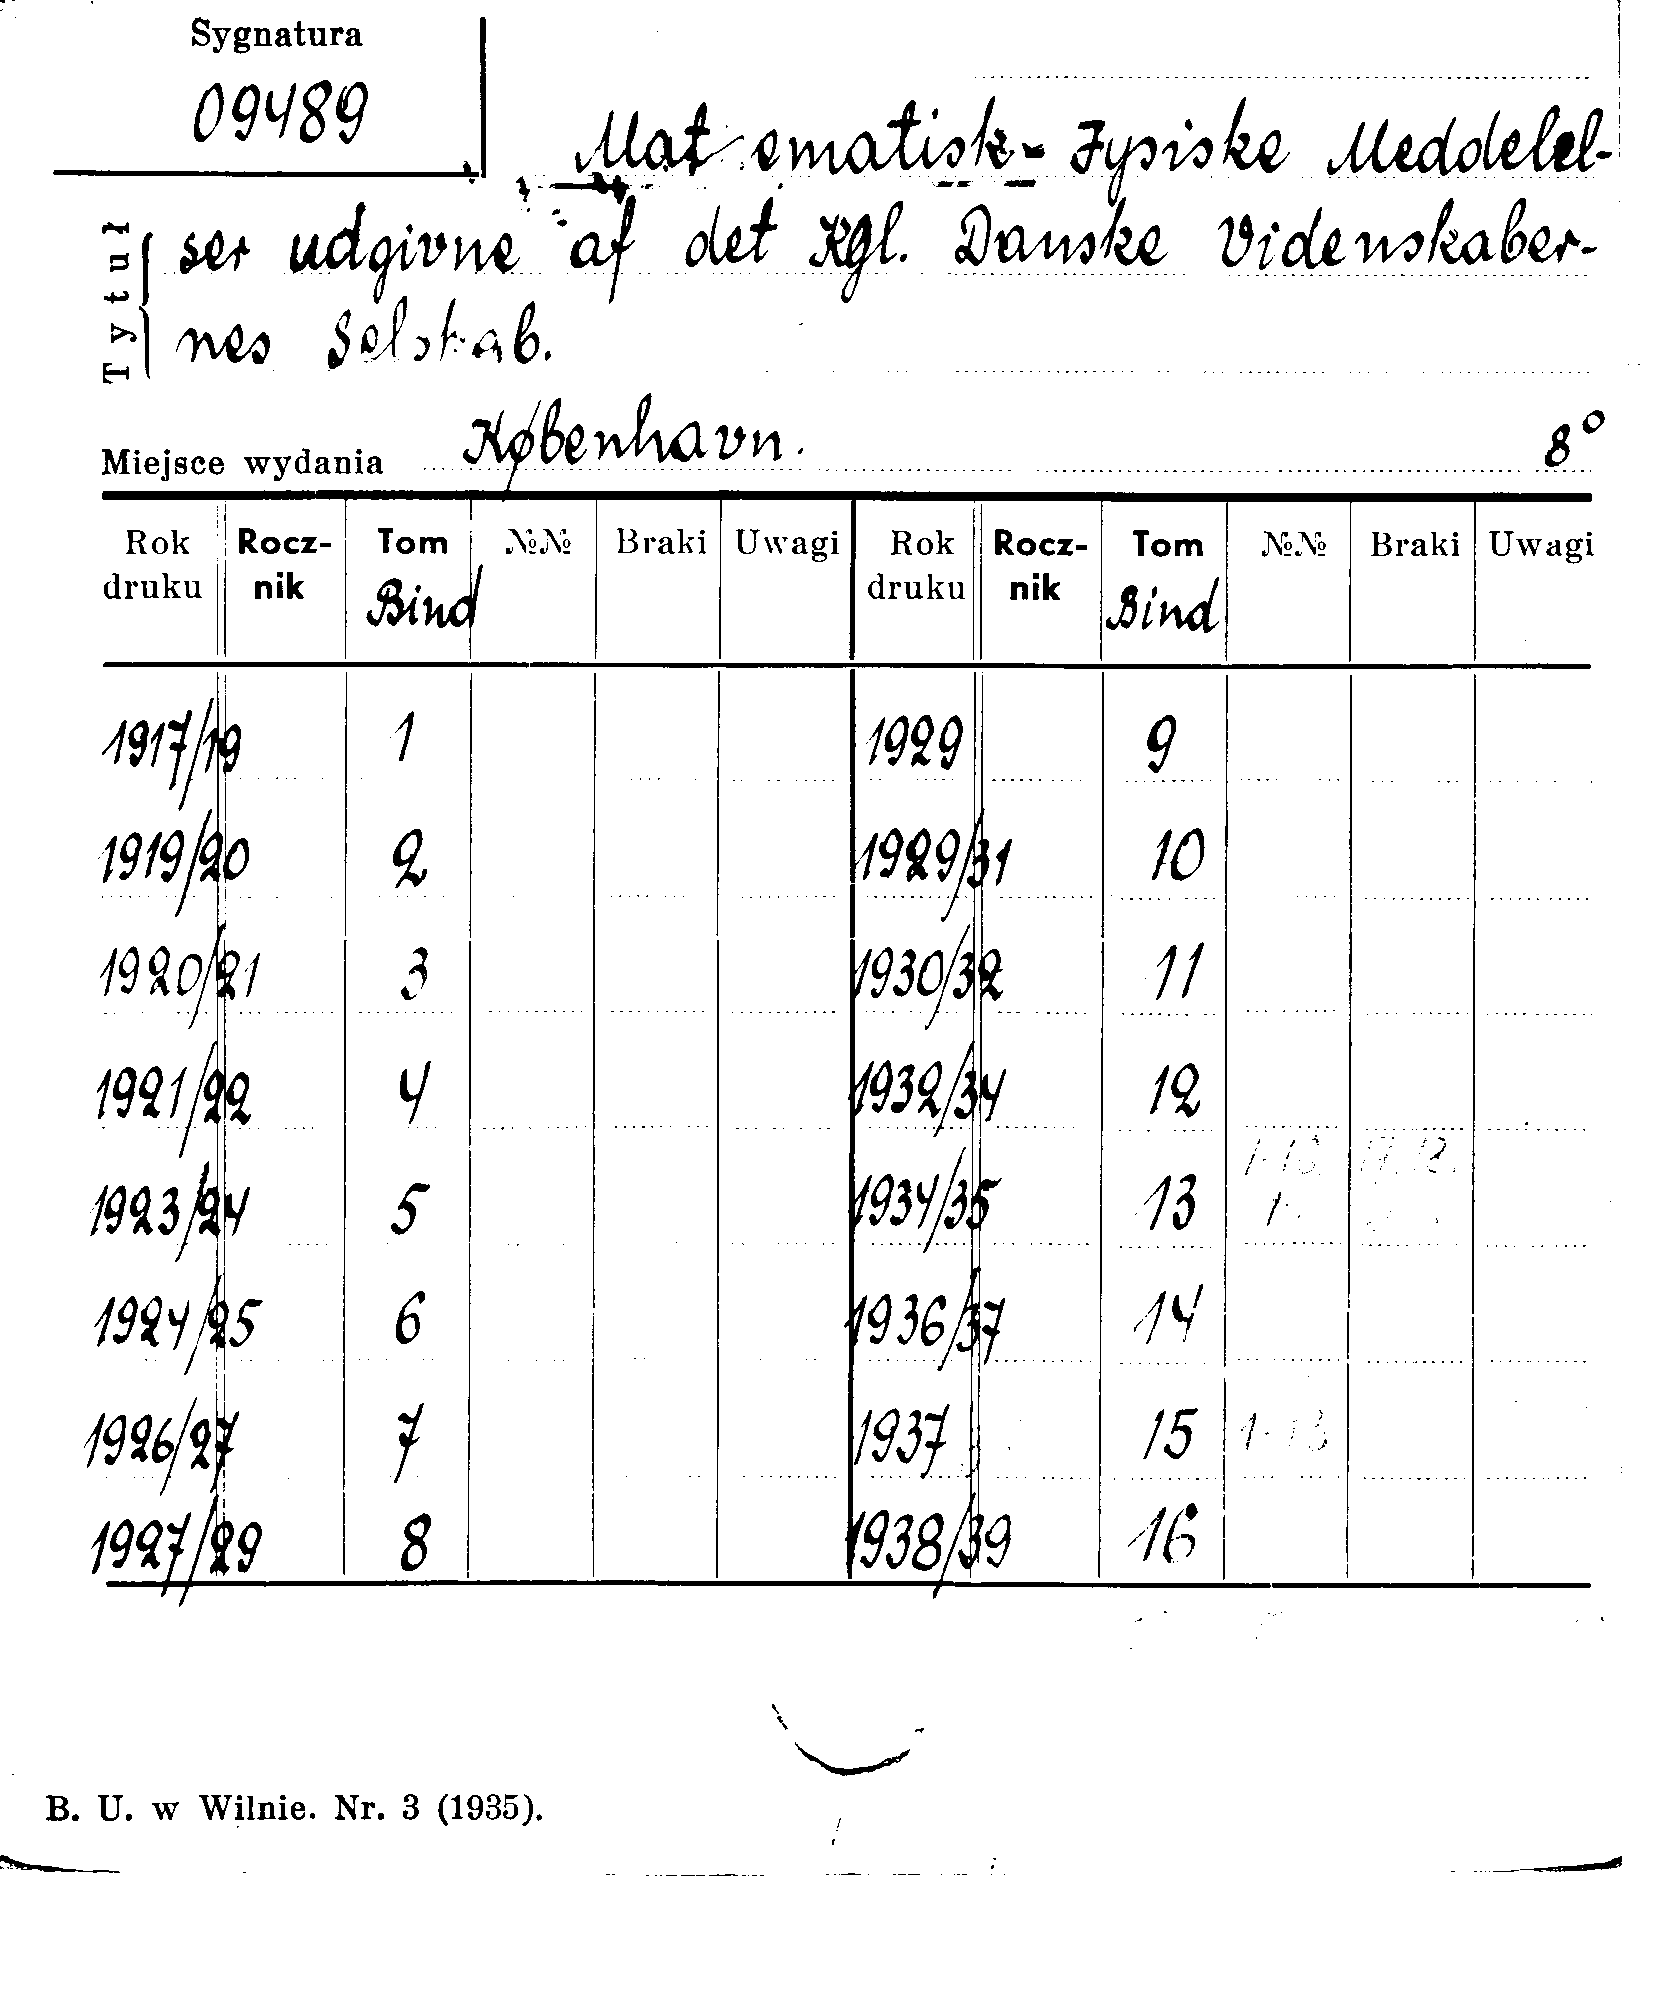 Sygnatura
09489
Matematisk-Fysiske Meddelel-
Tytuł
ser udgivne af det Kgl. Danske Videnskaber-
nes Selskab.
Miejsce wydania København. 8°
Rok druku Rocz-nik Tom №№ Braki Uwagi Rok druku Rocz-nik Tom №№ Braki Uwagi
Bind Bind
1917/19 1 1929 9
1919/20 2 1929/31 10
1920/21 3 1930/32 11
1921/22 4 1932/34 12
1923/24 5 1934/35 13
1924/25 6 1936/37 14
1926/27 7 1937 15 1-13
1927/29 8 1938/39 16
B. U. w Wilnie. Nr. 3 (1935).